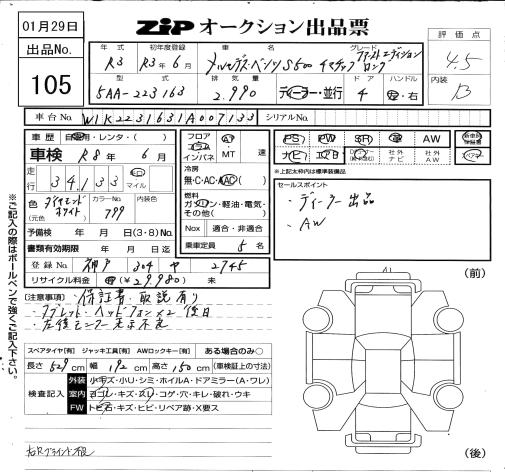 01月29日
出品No.
105
ZIP オークション出品票
評価点
4.5
内装
B
年式 初年度登録 車名 グレード
R3 R3年6月 メルセデス・ベンツ S500 4マチック ファーストエディション ロング
型式 排気量 ドア ハンドル
5AA-223163 2.990 ディーラー・並行 4 左・右
車台No. W1K2231631A007133 シリアルNo.
車歴 自家用・レンタ・( )
車検 R8年 6月
走行 34,133 km マイル
色 ダイヤモンドホワイト (元色) カラーNo. 799 内装色
予備検 年 月 日(3・8)No.
書類有効期限 年 月 日迄
登録No. 神戸 304 ヤ 2745
リサイクル料金 (¥29,980) 未
フロア コラム インパネ AT・MT 速
冷房 無・C・AC・AAC
燃料 ガソリン・軽油・電気・その他( )
Nox 適合・非適合
乗車定員 5名
PS PW SR 革 AW 新車時保証書
ナビ エアB 社外ナビ 社外AW
※上記太枠内は標準装備品
セールスポイント
・ディーラー出品
・AW
[注意事項]・保証書・取説有り
・タブレット・ヘッドフォン×2 後日
・左後モニター表示不良
スペアタイヤ[有] ジャッキ工具[有] AWロックキー[有] ある場合のみ○
長さ 529cm 幅 192cm 高さ 150cm (車検証上の寸法)
検査記入
外装 小キズ・小U・シミ・ホイルA・ドアミラー(A・ワレ)
室内 ヨゴレ・キズ・スリ・コゲ・穴・キレ・破れ・ウキ
FW トビ石・キズ・ヒビ・リペア跡・X要ス
(前)
(後)
※ご記入の際はボールペンで強くご記入下さい。